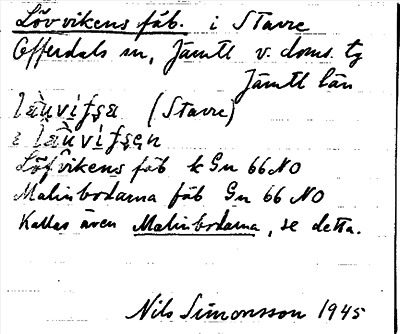 Lövvikens fäb. i Stavre
Offerdals sn, Jämtl v. doms. tg
Jämtl län
(Stavre)
i
Löfvikens fäb k Gn 66 NO
Malinbodarna fäb Gn 66 NO
Kallas även Malinbodarna, se detta.
Nils Simonsson 1945